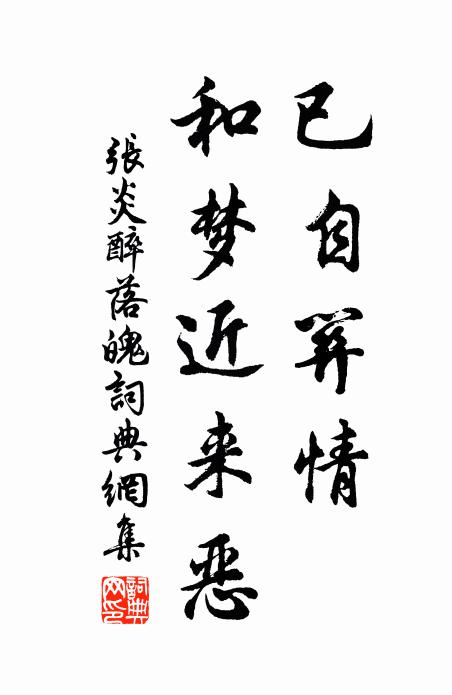 已自关情
和梦近来恶
張炎醉落魄詞典網集
詞典网印